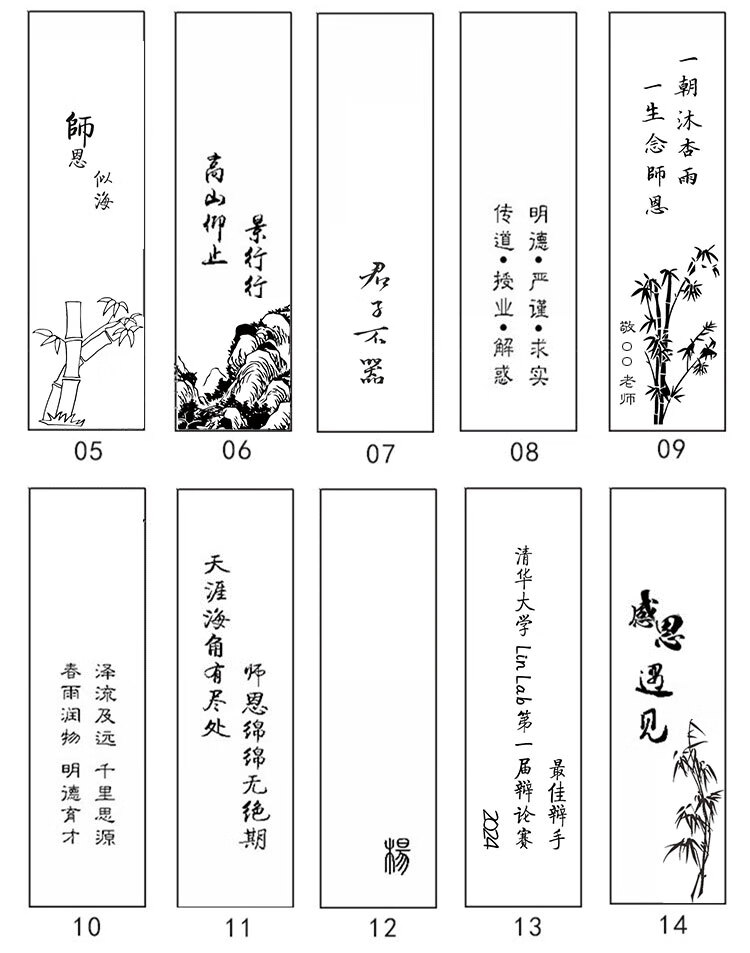 師恩
似海
05
高山仰止
景行行
06
君子不器
07
明德•严谨•求实
传道•授业•解惑
08
一朝沐杏雨
一生念師恩
敬○○老师
09
泽流及远 千里思源
春雨润物 明德育才
10
天涯海角有尽处
师恩绵绵无绝期
11
楊
12
清华大学 Lin Lab 第一届辩论赛
最佳辩手
2024
13
感恩
遇见
14